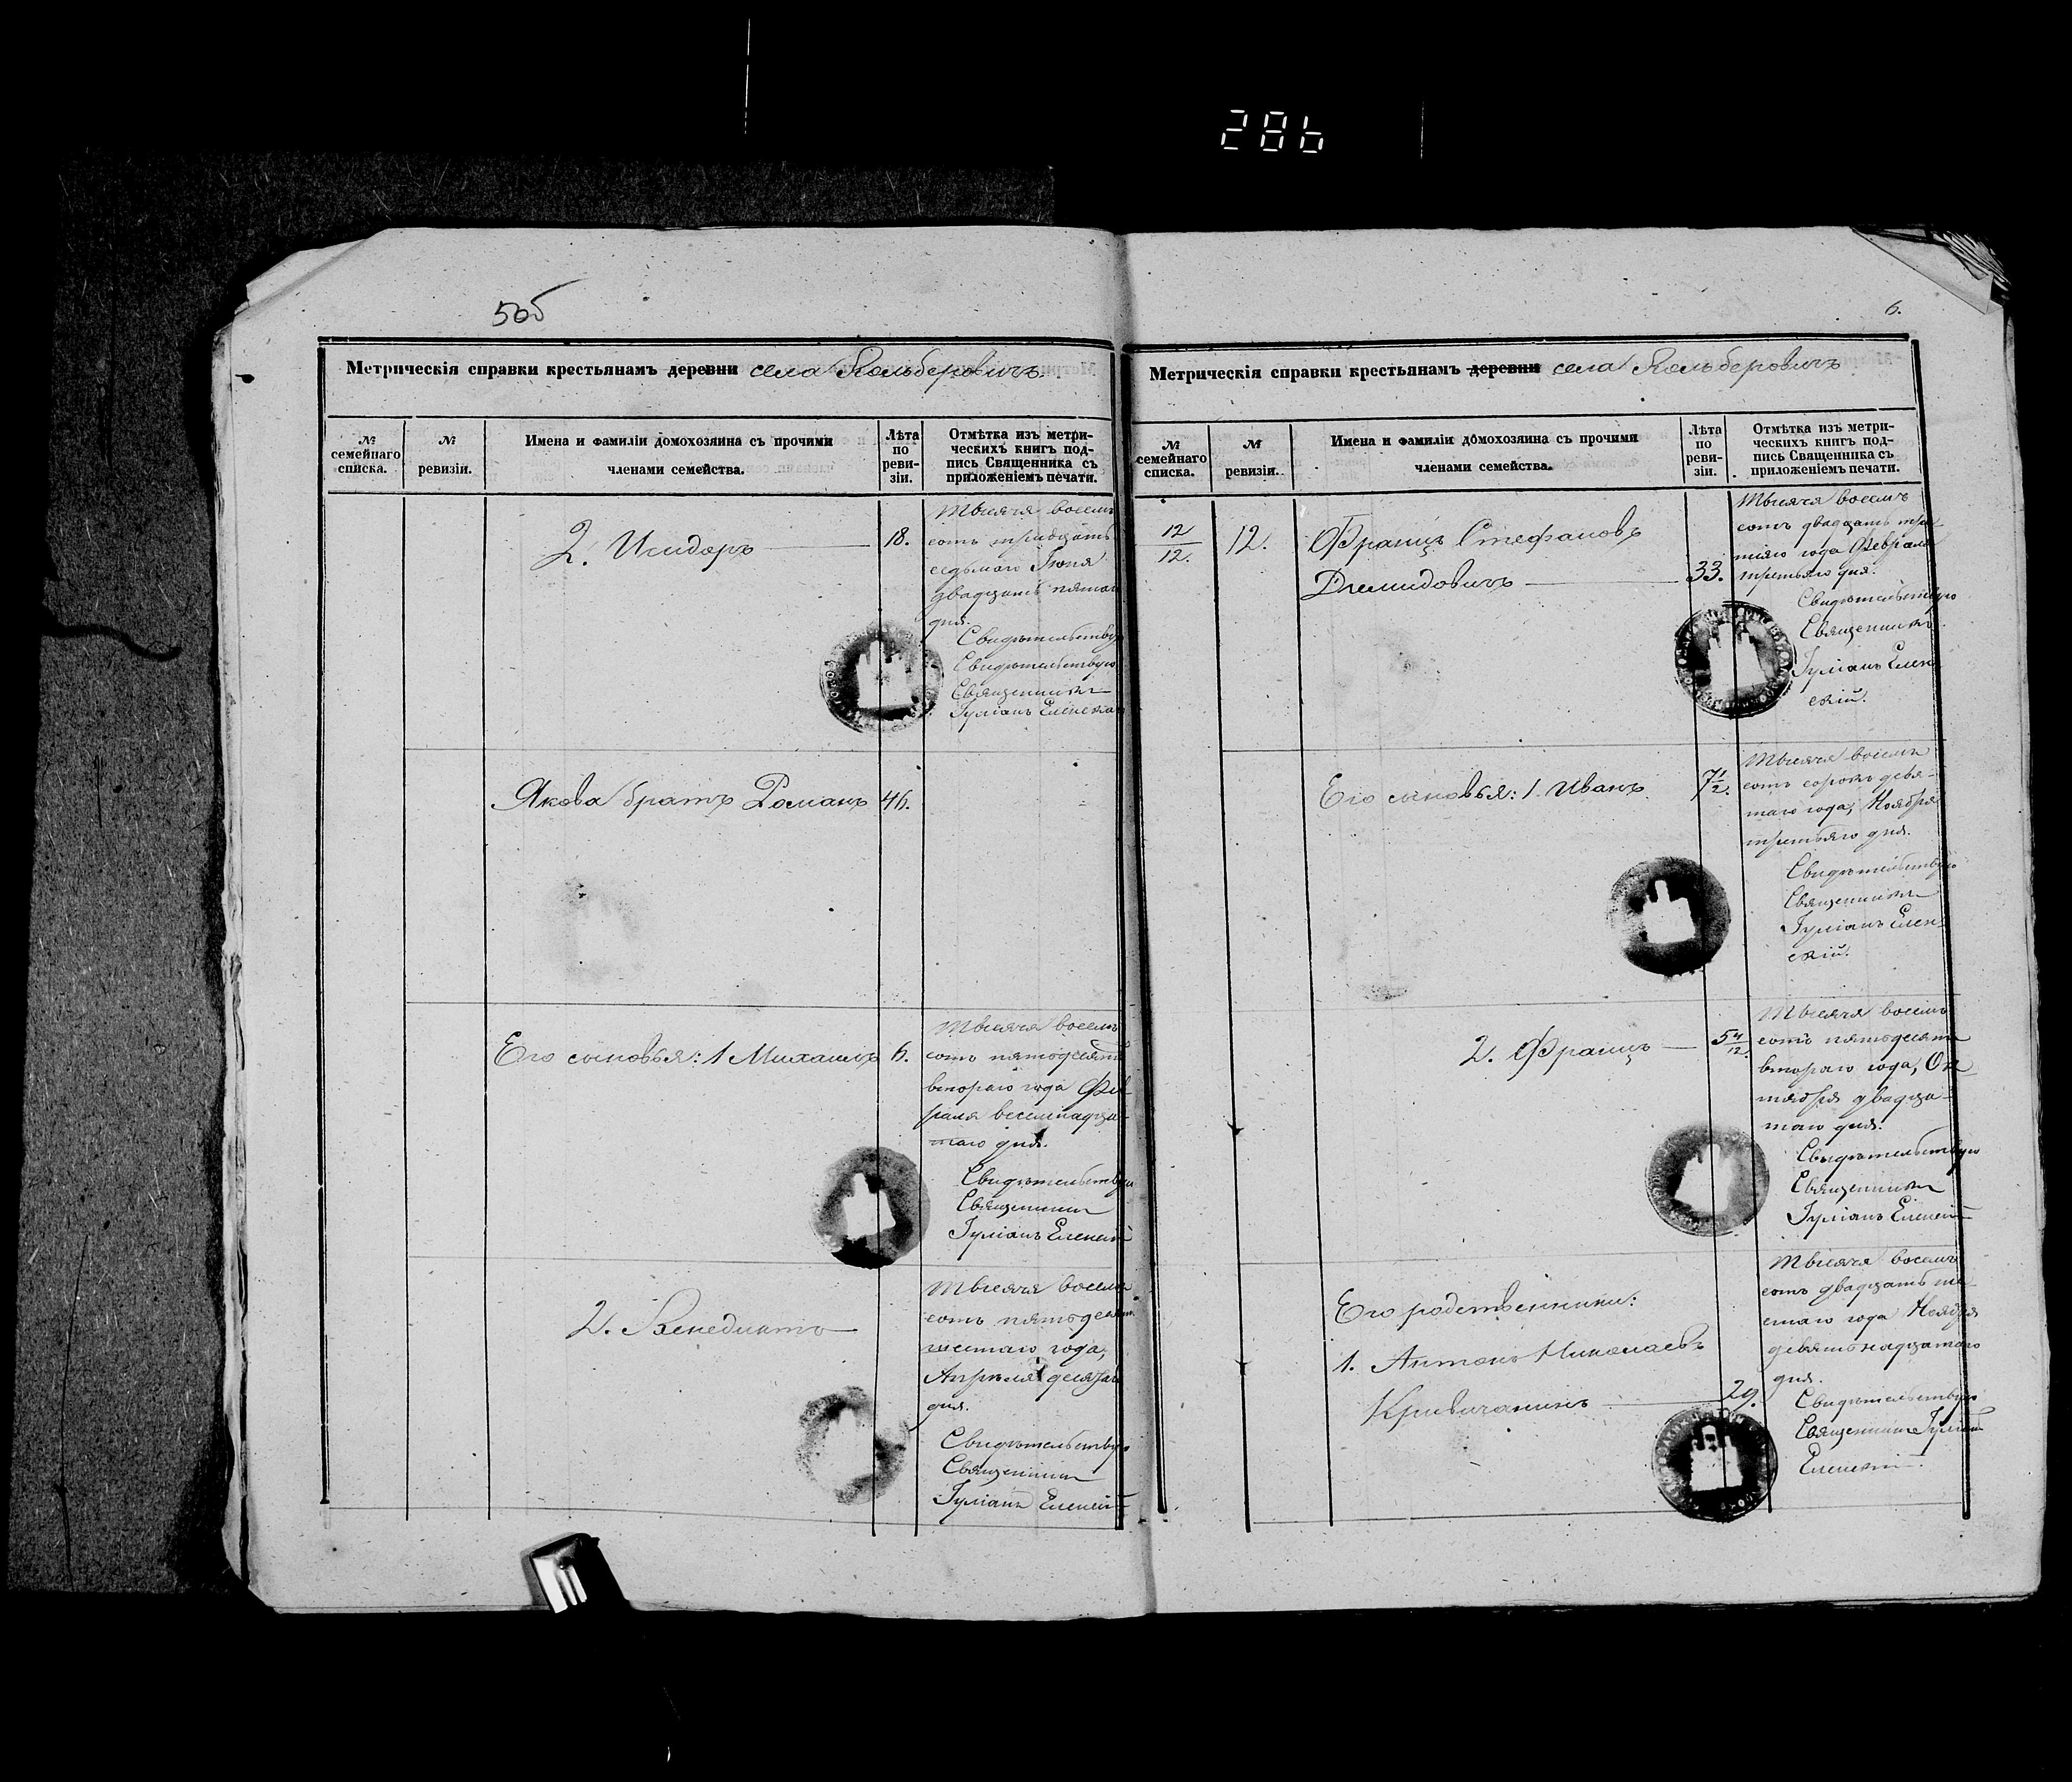 286
5об
Метрическія справки крестьянамъ деревни села Кольберовичъ.
№ семейнаго списка.
№ ревизіи.
Имена и фамиліи домохозяина съ прочими членами семейства.
Лѣта по ревизіи.
Отмѣтка изъ метрическихъ книгъ подпись Священника съ приложеніемъ печати.
2. Исидоръ
18.
Тысяча восемь
сотъ тридцать
седьмаго Іюня
двадцать пятаго
дня.
Свидѣтельствую
Свидѣтельствую
Священникъ
Іуліанъ
Якова братъ Романъ 46.
Его сыновья: 1 Михаилъ 6.
Тысяча восемь
сотъ пятьдесятъ
втораго года Фев
раля восемнадца-
таго дня.
Свидѣтельствую
Священникъ
Іуліанъ
2. Венедиктъ
Тысяча восемь
сотъ пятьдесятъ
шестаго года,
Апрѣля
дня.
Свидѣтельствую
Священникъ
Іуліанъ
6.
Метрическія справки крестьянамъ деревни села Кольберовичъ
№ семейнаго списка.
№ ревизіи.
Имена и фамиліи домохозяина съ прочими членами семейства.
Лѣта по ревизіи.
Отмѣтка изъ метрическихъ книгъ подпись Священника съ приложеніемъ печати.
12/12.
12.
Францъ Стефановъ
Демидовичъ
33.
Тысяча восемь
сотъ двадцать тре
тяго года Февраля
третьяго дня.
Свидѣтельствую
Священникъ
Іуліанъ Елен
скій.
Его сыновья: 1 Иванъ.
7 1/2.
Тысяча восемь
сотъ сорокъ девя-
таго года, Ноября
третьяго дня.
Свидѣтельствую
Священникъ
Іуліанъ Елен-
скій.
2. Францъ
Тысяча восемь
сотъ пятьдесятъ
втораго года, Ок-
тября двадца-
таго дня.
Свидѣтельствую
Священникъ
Іуліанъ
Его родственники:
1. Антонъ Николаевъ
Кривичанинъ
29.
Тысяча восемь
сотъ двадцать ше
стаго года Ноября
девятьнадцатаго
дня.
Свидѣтельствую
Священникъ Іуліанъ
Еленскій.